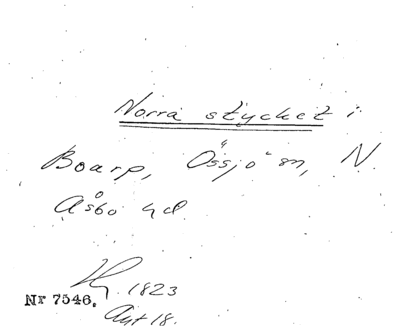 Norra stycket i
Boarp, Össjö sn, N.
Åsbo hd.
1823
Nr 7546.
Ant 18.